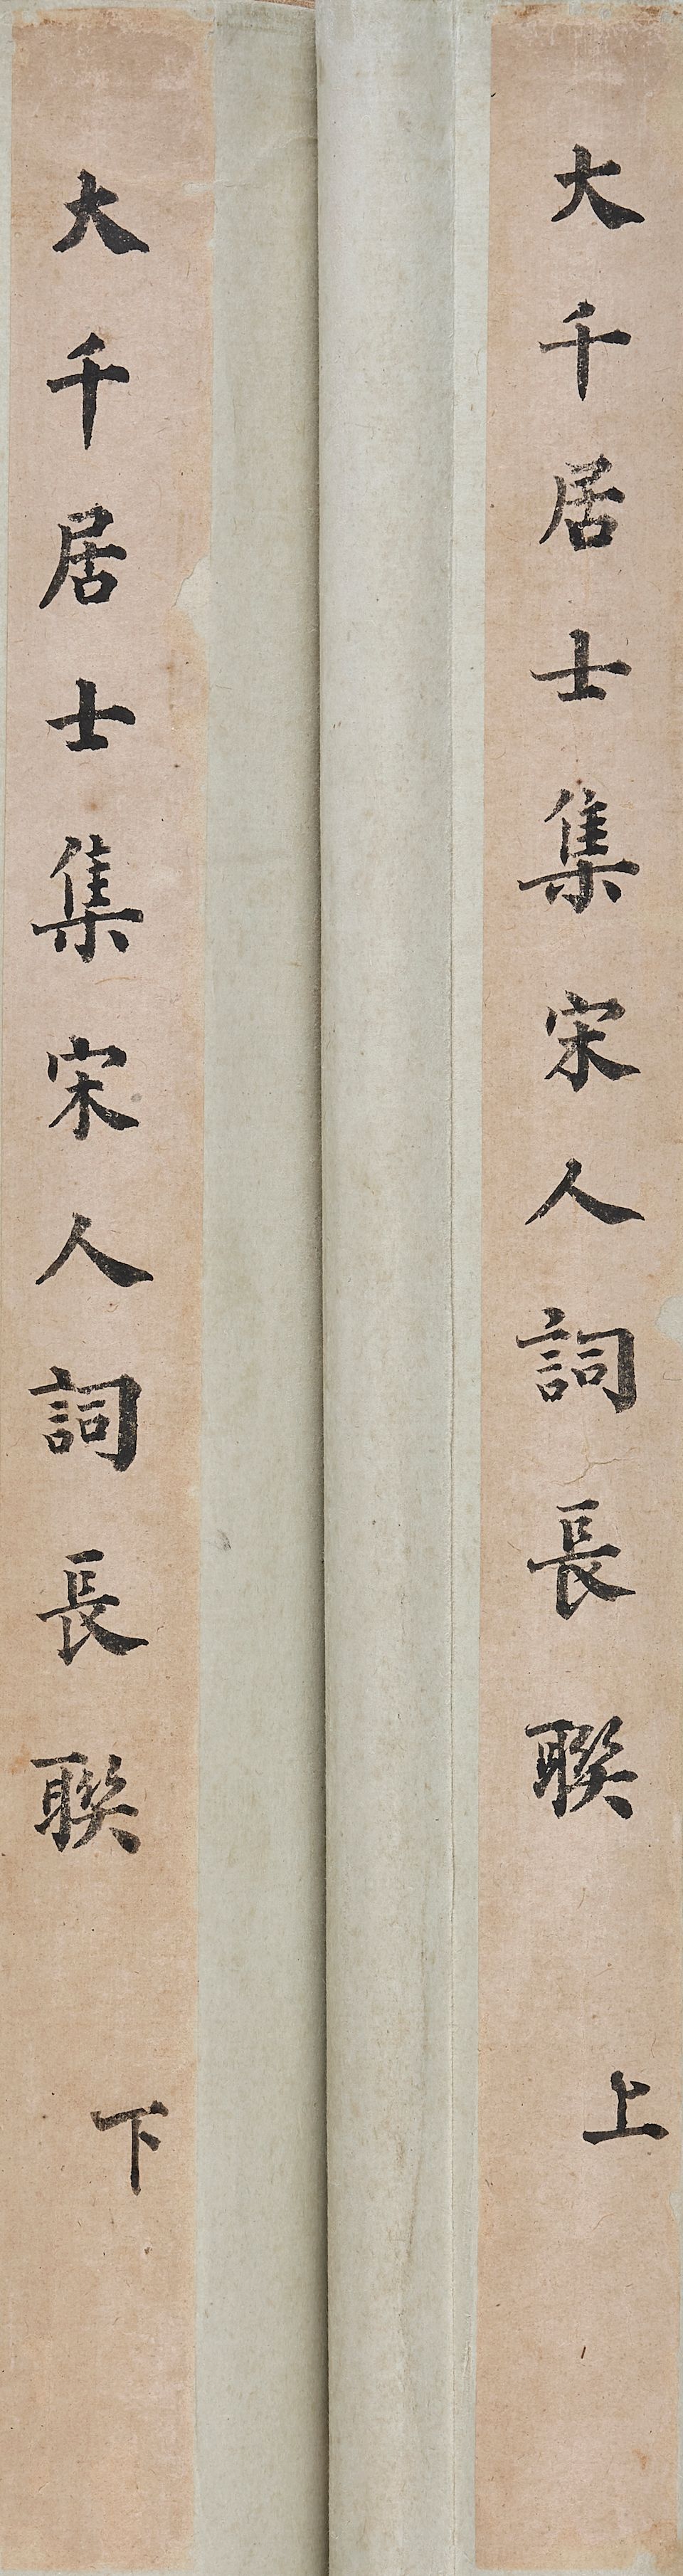 大千居士集宋人詞長聯 上
大千居士集宋人詞長聯 下